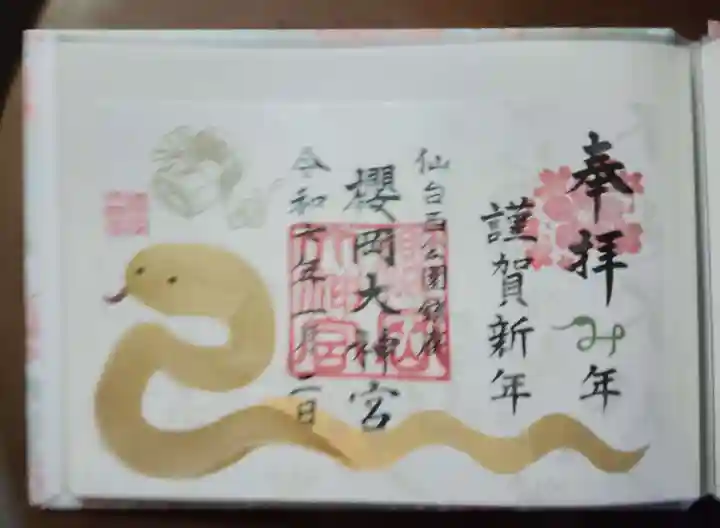 奉拝み年
謹賀新年
仙台西公園鎮座
櫻岡大神宮
令和六年一月二日